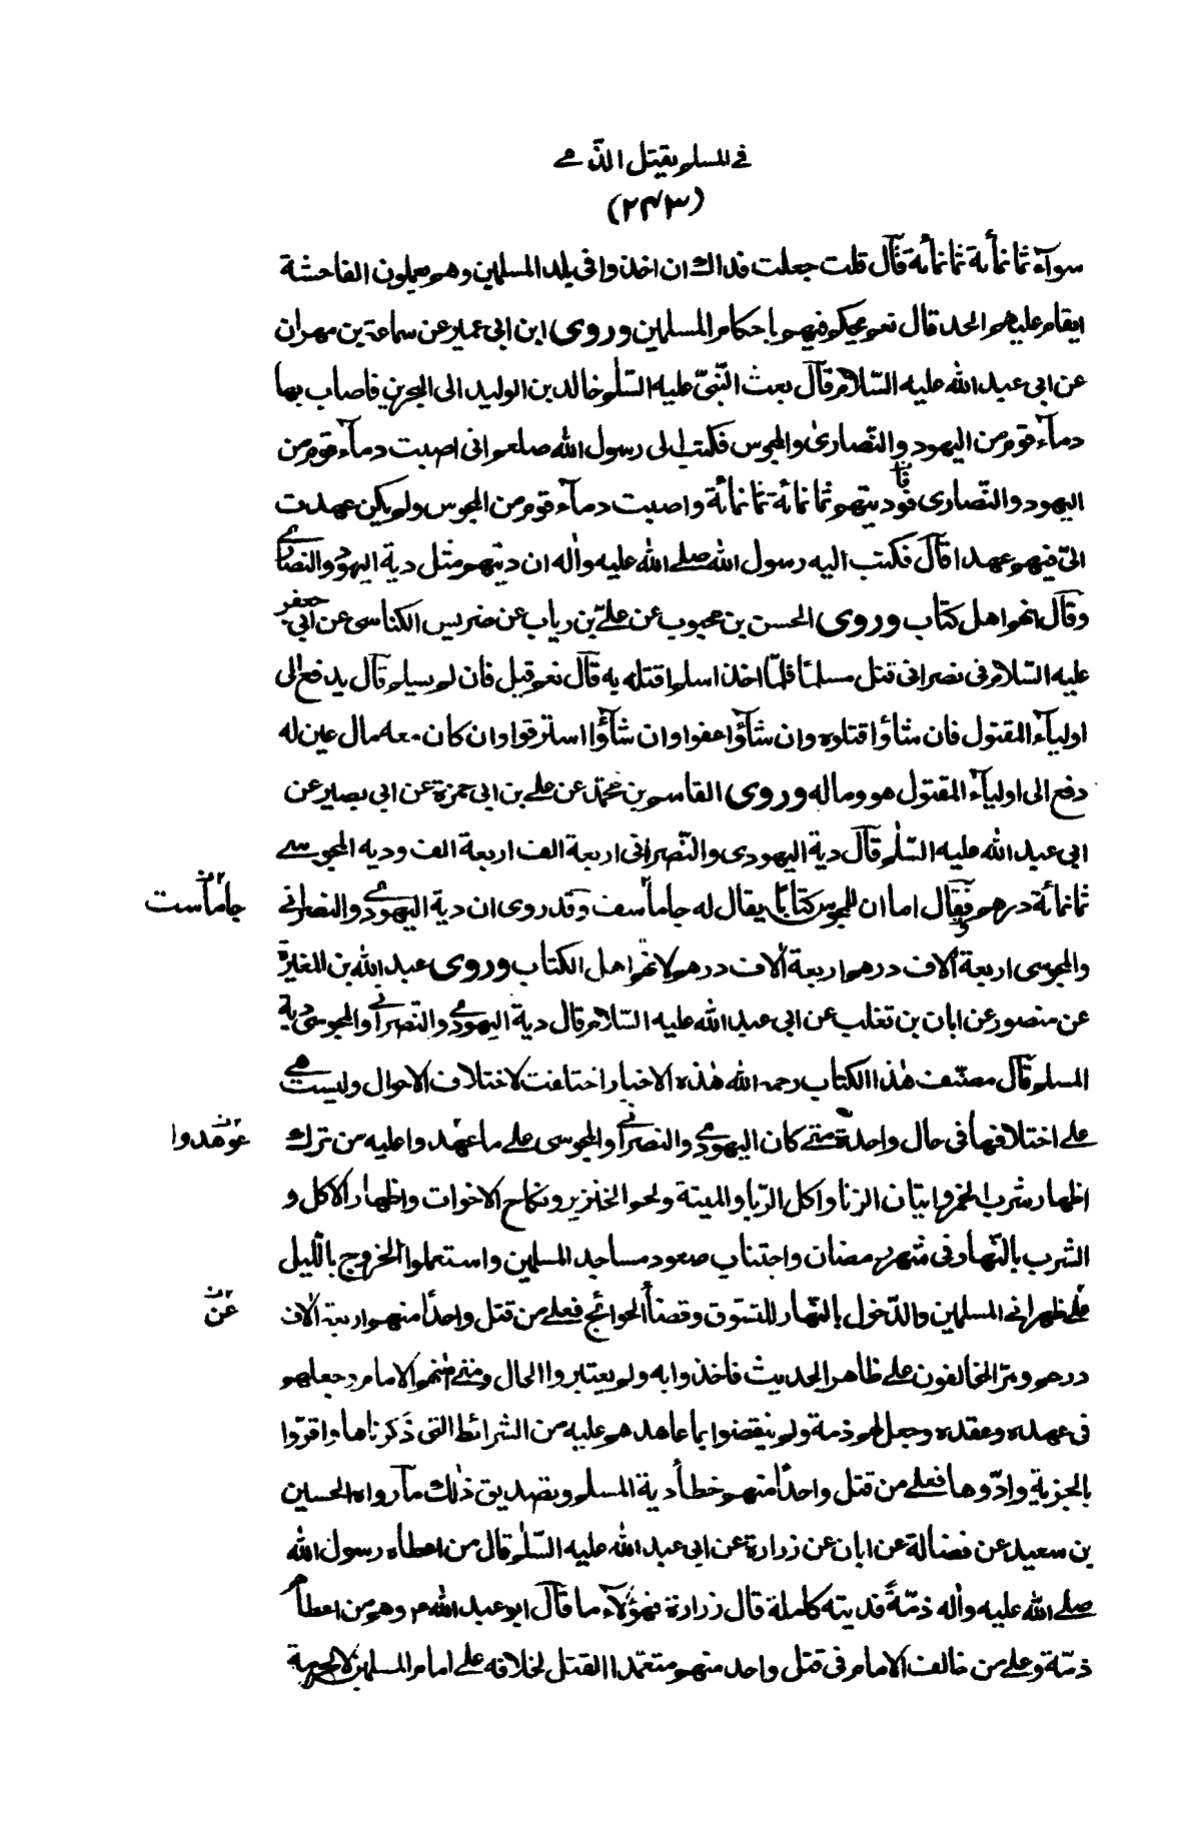 في المسلم يقتل الذمي
(٢٤٣)
سوآء ثمانمأية ثمانمأية قال قلت جعلت فداك ان اخذوا فى بلاد المسلمين وهم يعملون الفاحشة
ايقام عليهم الحد قال نعم يحكم فيهم باحكام المسلمين وروى ابن ابى عمير عن سماعة بن مهران
عن ابى عبد الله عليه السّلام قال بعث النّبىّ عليه السّلم خالد بن الوليد الى البحرين فاصاب بها
دمآء قوم من اليهود والنّصارىٰ والمجوس فكتب الى رسول الله صلعم انى اصبت دمآء قوم من
اليهود والنّصارى فوديتهم ثمانمائة ثمانمائة واصبت دمآء قوم من المجوس ولم يكن عهدت
الىّ فيهم عهدا قال فكتب اليه رسول الله صلے الله عليه وآله ان ديتهم مثل دية اليهود والنصارى
وقال انهم اهل كتاب وروى الحسن بن محبوب عن علىّ بن رياب عن ضريس الكناسى عن ابى جعفر
عليه السّلام فى نصرانى قتل مسلمًا فلمّا اخذ اسلم اقتله به قال نعم قيل فان لم يسلم قال يدفع الى
اوليآء المقتول فان شاؤا قتلوه وان شآؤا عفوا وان شآؤا استرقوا وان كان معه مال عين له
دفع الى اوليآء المقتول هو وماله وروى القاسم بن محمّد عن على بن ابى حمزة عن ابى بصير عن
ابى عبد الله عليه السّلم قال دية اليهودى والنّصرانى اربعة الف اربعة الف ودية المجوسے
ثمانمائة درهم فقال اما ان للمجوس كتابًا يقال له جاماسف وقد روى ان دية اليهودى والنصرانى
جاماست
والمجوسى اربعة آلاف درهم اربعة آلاف درهم لانهم اهل الكتاب وروى عبد الله بن المغيرة
عن منصور عن ابان بن تغلب عن ابى عبد الله عليه السّلام قال دية اليهودى والنّصرانى والمجوسى دية
المسلم قال مصنّف هٰذا الكتاب رحمه الله هٰذه الاخبار اختلفت لاختلاف الاحوال وليست هے
علے اختلافها فى حال واحدة متے كان اليهودى والنصرانى والمجوسى علے ما عهدوا عليه من ترك
عوهدوا
اظهار شرب الخمر واتيان الزنا واكل الرّبا والميتة ولحم الخنزير ونكاح الاخوات واظهار الاكل و
الشرب بالنّهار فى شهر رمضان واجتناب صعود مساجد المسلمين واستعملوا الخروج بالّليل
علے ظهرانے المسلمين والدّخول بالنّهار للتسّوق وقضآء الحوائج فعلے من قتل واحدًا منهم اربعة الاف
عن
درهم ومرّ المخالفون علے ظاهر الحديث فاخذوا به ولم يعتبروا الحال ومتے امنهم الامام وجعلهم
فى عهده وعقده وجعل لهم ذمة ولم ينقضوا ما عاهدهم عليه من الشرائط التى ذكرناها واقرّوا
بالجزية وادّوها فعلے من قتل واحدًا منهم خطأ دية المسلم وتصديق ذٰلك مآ رواه الحسين
بن سعيد عن فضالة عن ابان عن زرارة عن ابى عبد الله عليه السّلٰم قال من اعطاه رسول الله
صلے الله عليه وآله ذمّةً فديته كاملة قال زرارة فهؤلآء ما قال ابو عبد الله ع وهم من اعطاهم
ذمّة وعلے من خالف الامام فى قتل واحد منهم متعمّدا القتل لخلافه علے امام المسلمين لا لحرمة